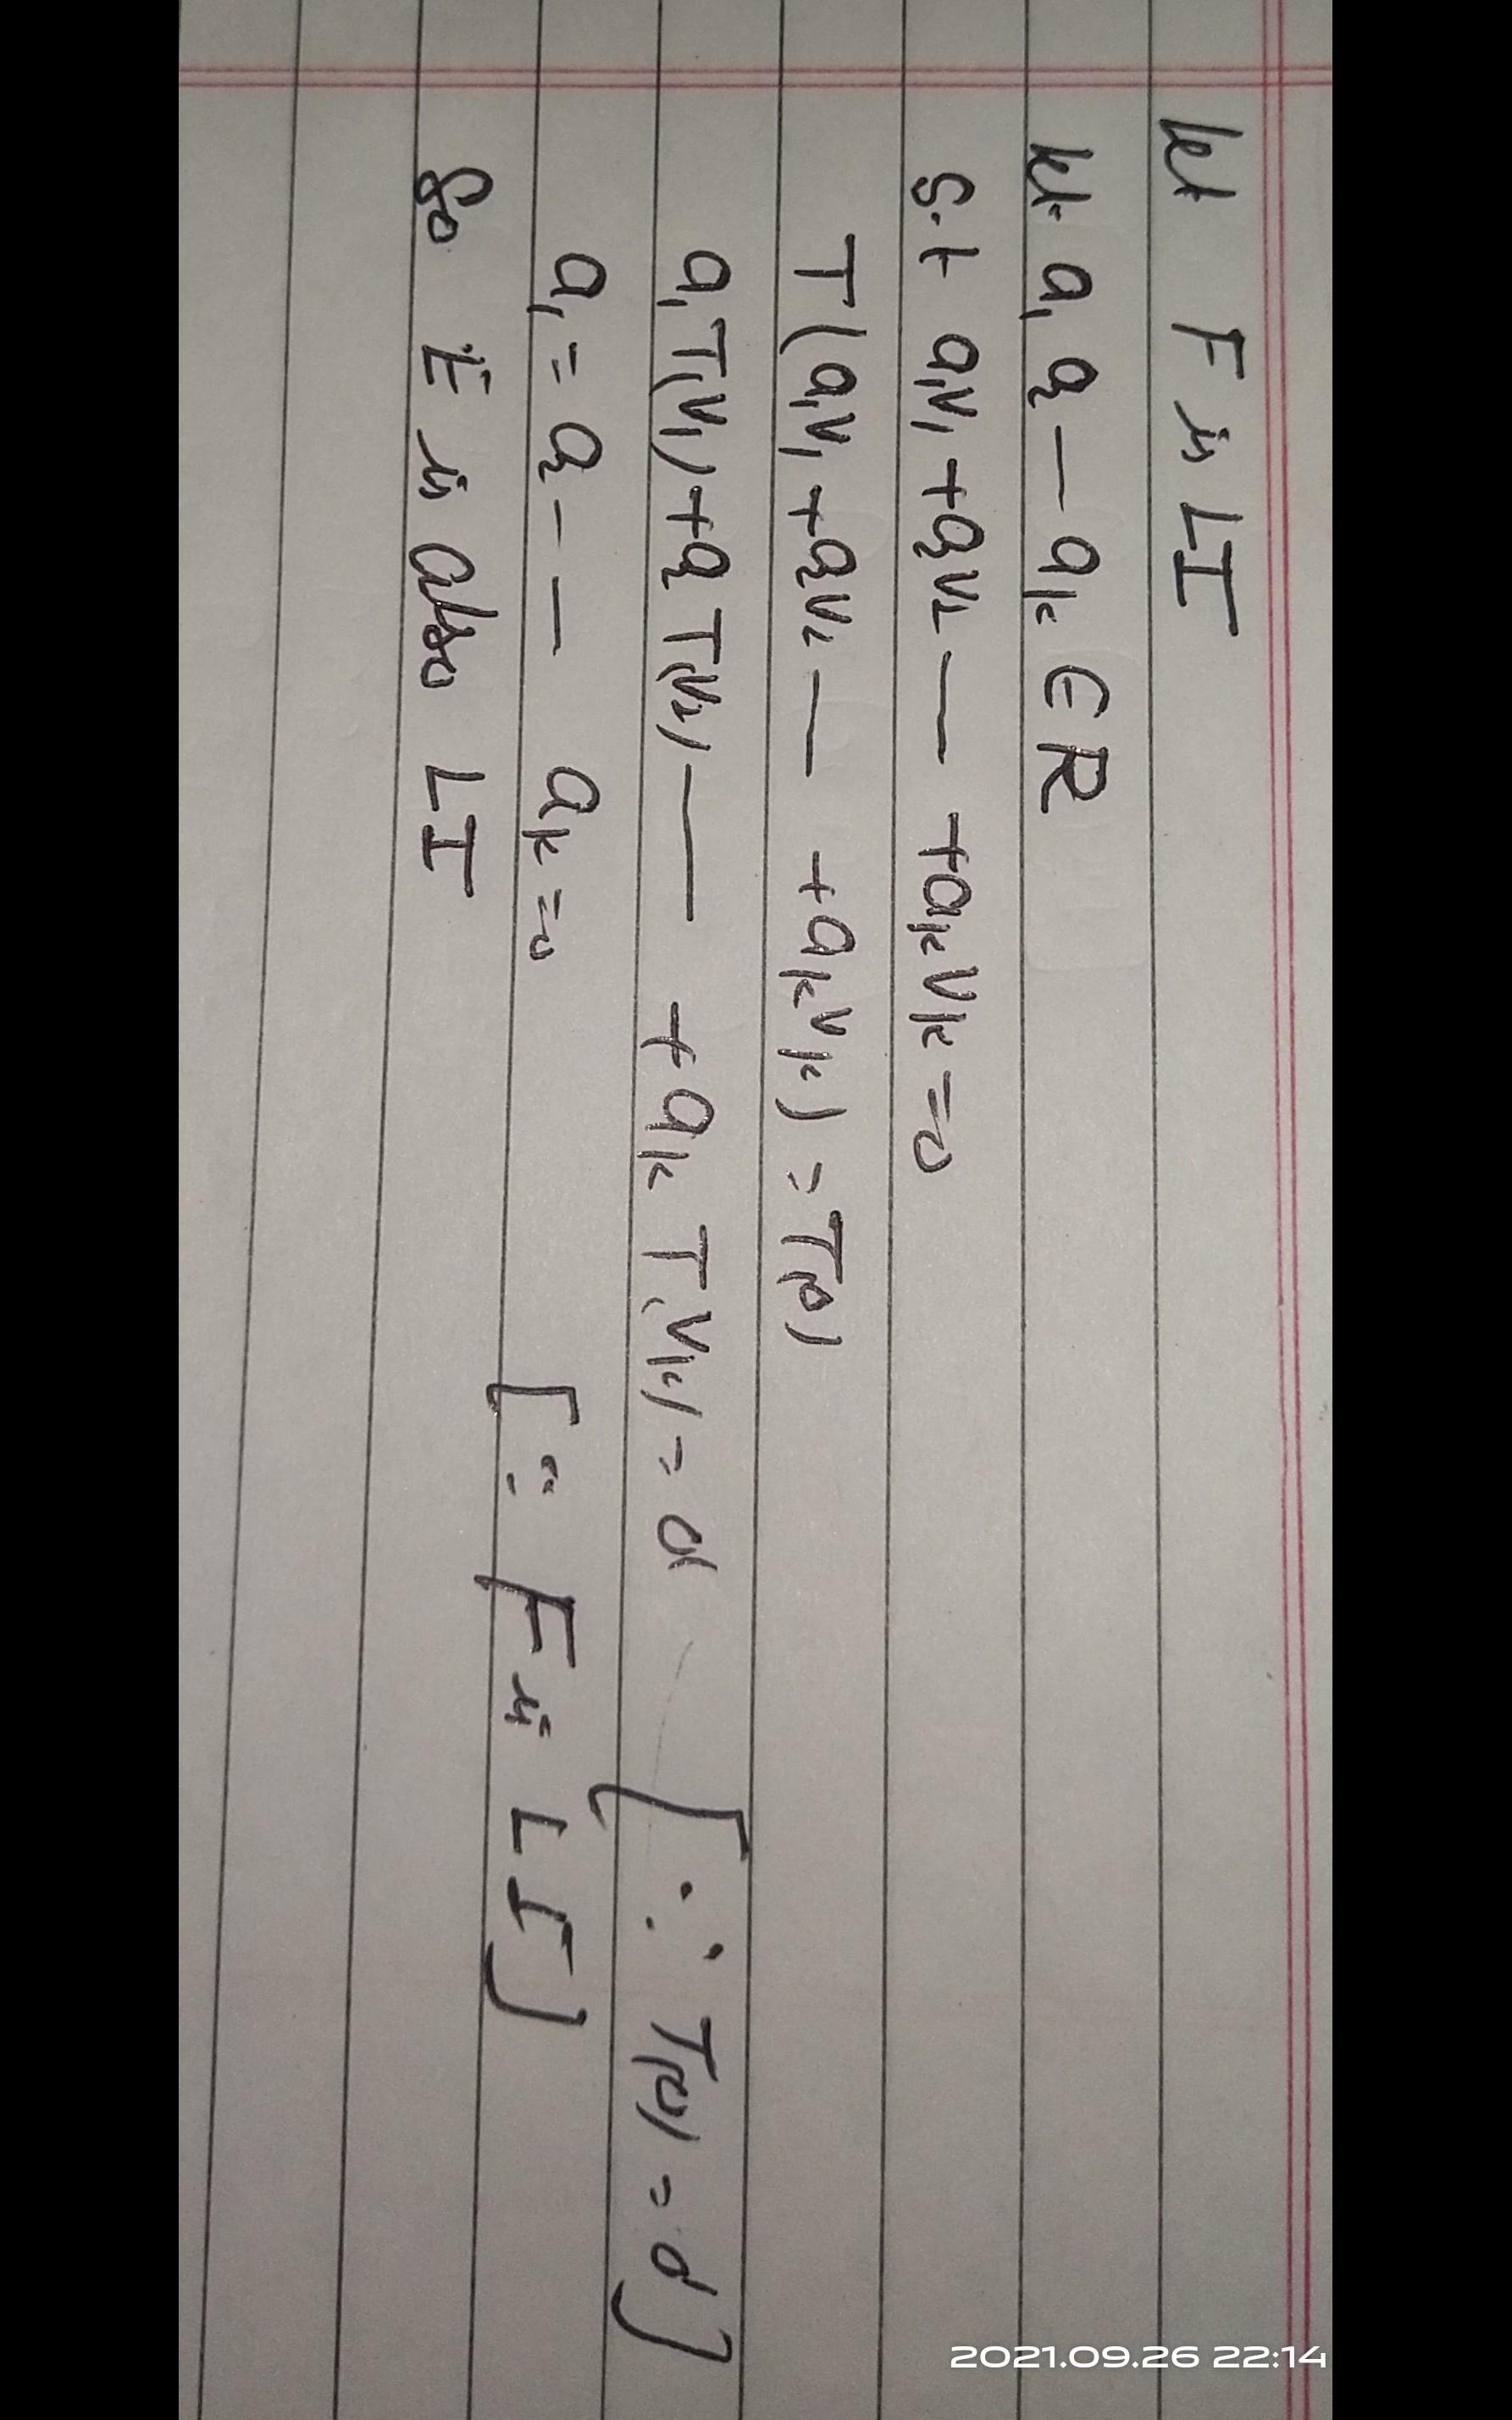 let F is LI
let a₁ a₂ — aₖ ∈ R
S.t a₁v₁ + a₂v₂ — + aₖvₖ = 0
T(a₁v₁ + a₂v₂ — + aₖvₖ) = T(0)
a₁T(v₁) + a₂T(v₂) — + aₖT(vₖ) = 0' [∵ T(0) = 0']
a₁ = a₂ - — aₖ = 0 [∵ F is LI]
So E is also LI
2021.09.26 22:14